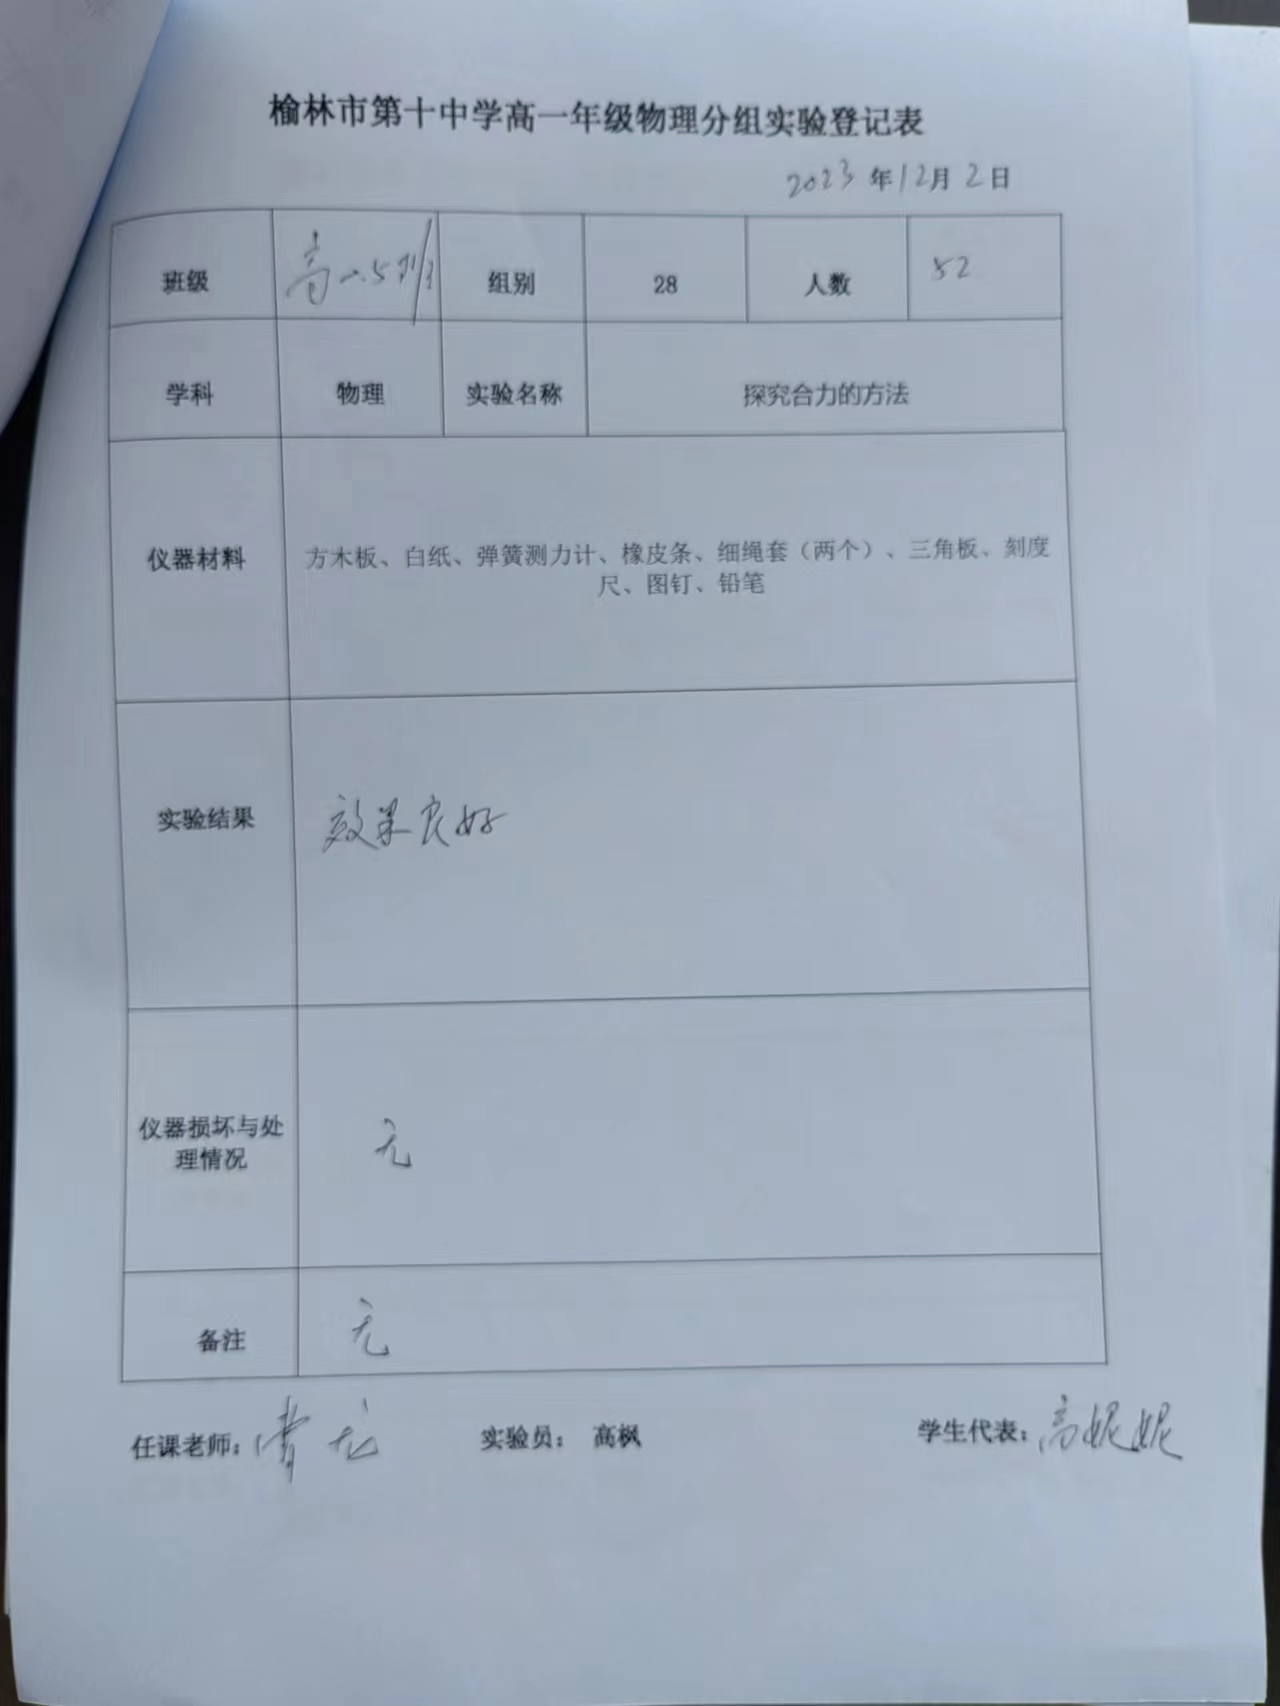 榆林市第十中学高一年级物理分组实验登记表
2023年12月2日
班级 高一.5班 组别 28 人数 52
学科 物理 实验名称 探究合力的方法
仪器材料 方木板、白纸、弹簧测力计、橡皮条、细绳套（两个）、三角板、刻度
尺、图钉、铅笔
实验结果 效果良好
仪器损坏与处
理情况 无
备注 无
任课老师： 实验员： 高枫 学生代表：高妮妮